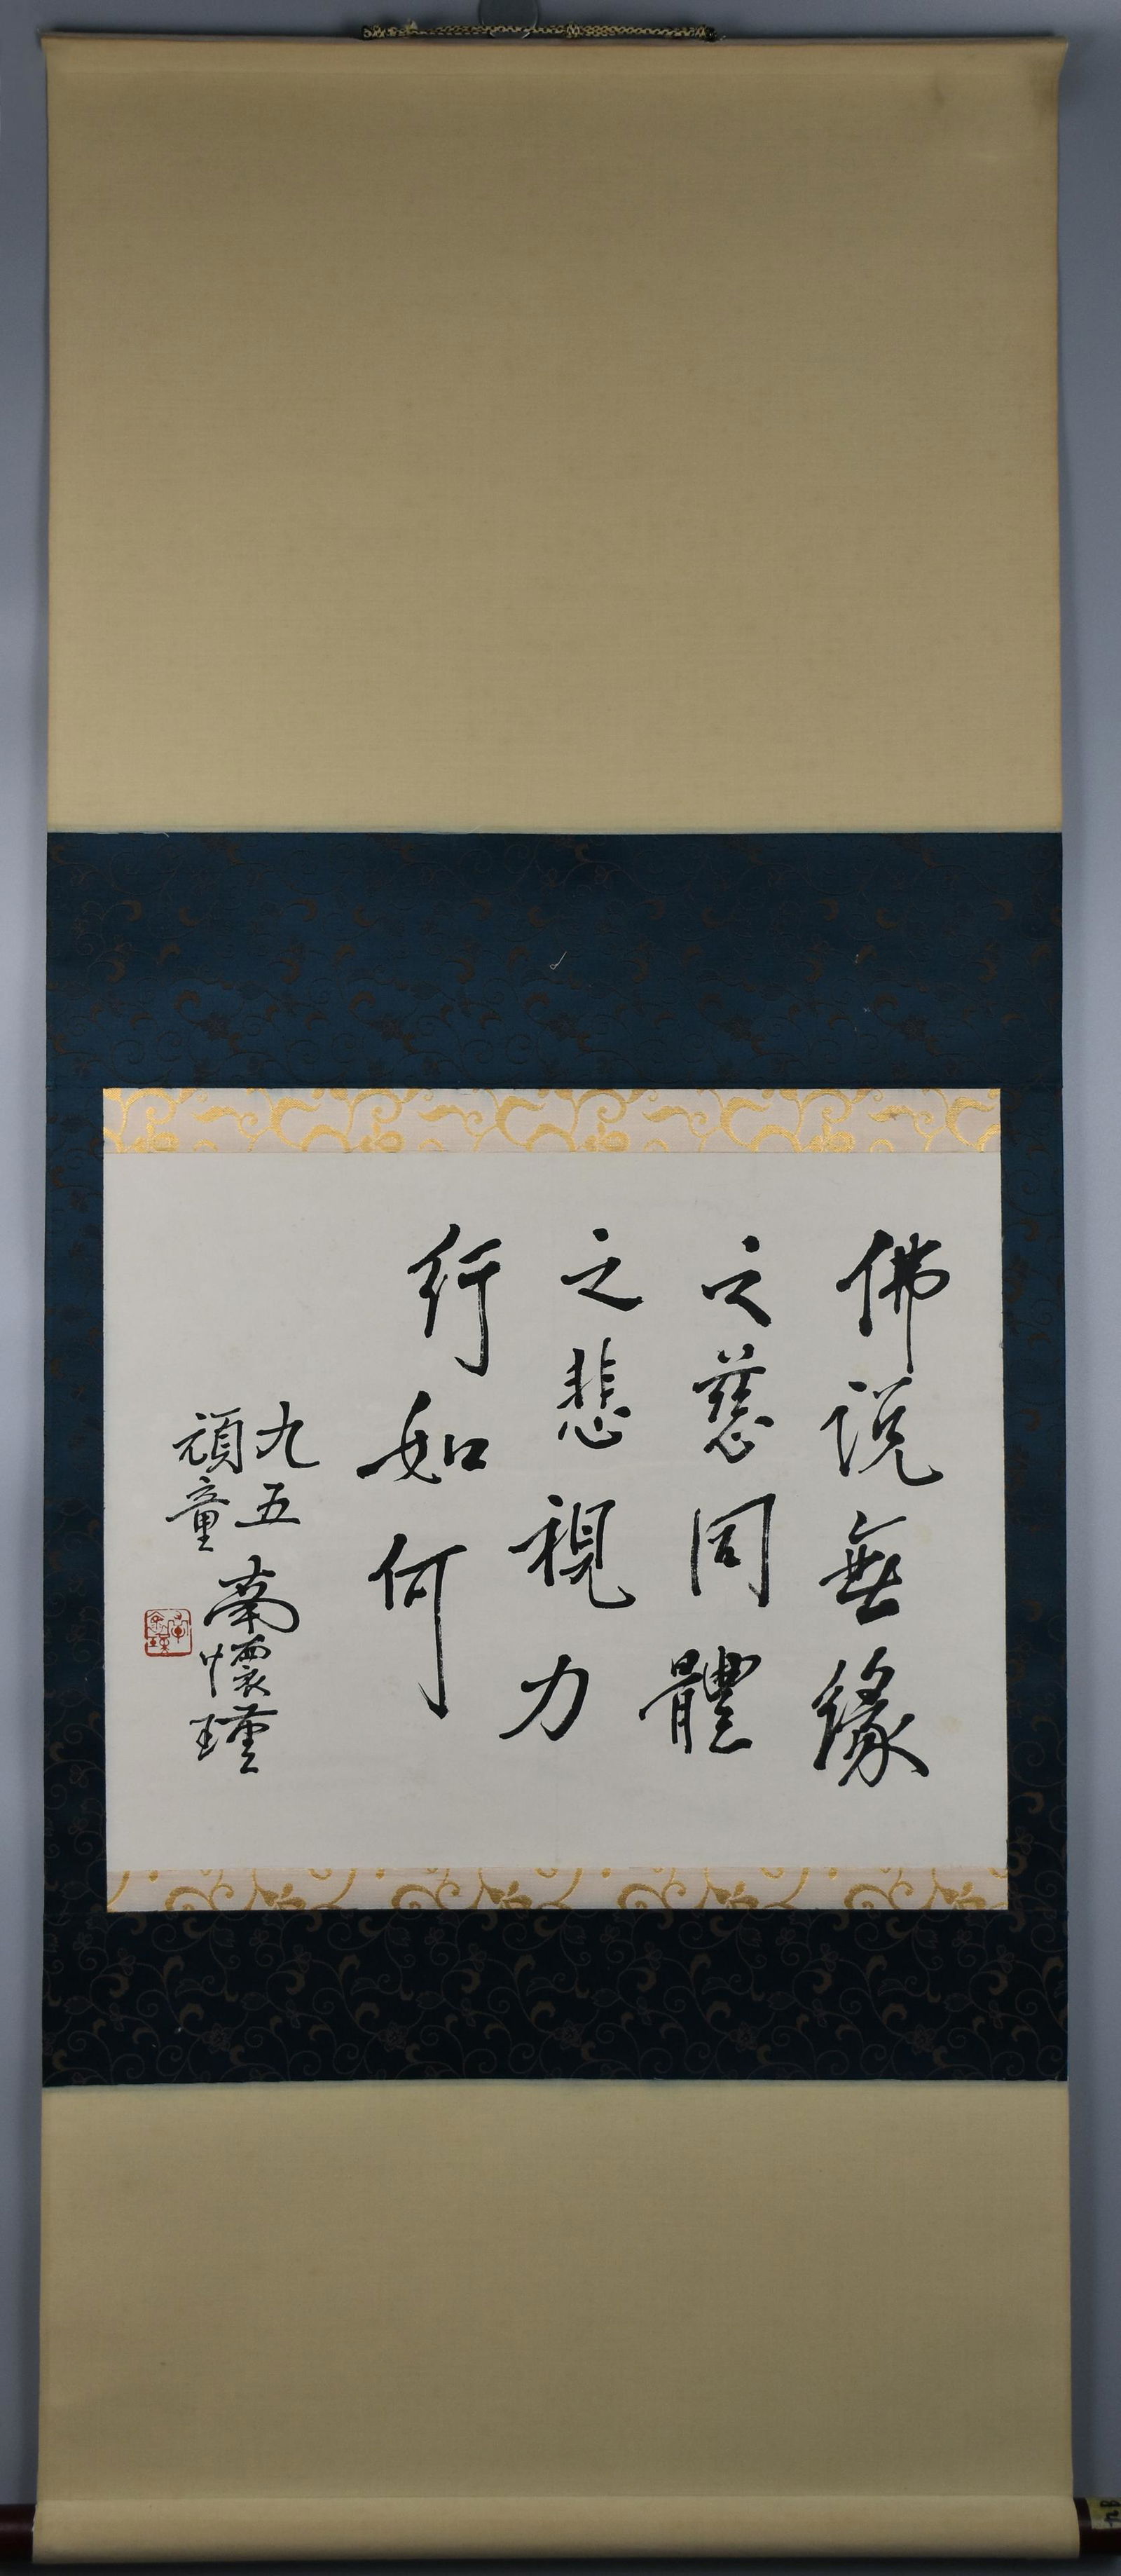 佛説無緣
之慈同體
之悲視力
行如何
九五
頑童
南懷瑾